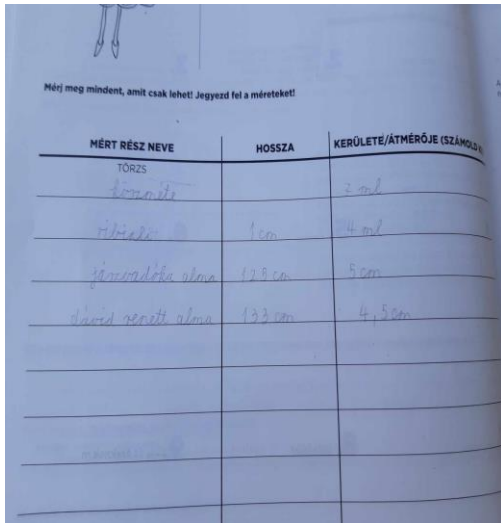 Mérj meg mindent, amit csak lehet! Jegyezd fel a méreteket!
MÉRT RÉSZ NEVE HOSSZA KERÜLETE/ÁTMÉRŐJE (SZÁMOLD
TÖRZS
köszméte 2 ml
1 cm 4 ml
alma 125 cm 5 cm
dávid renett alma 133 cm 4,5cm